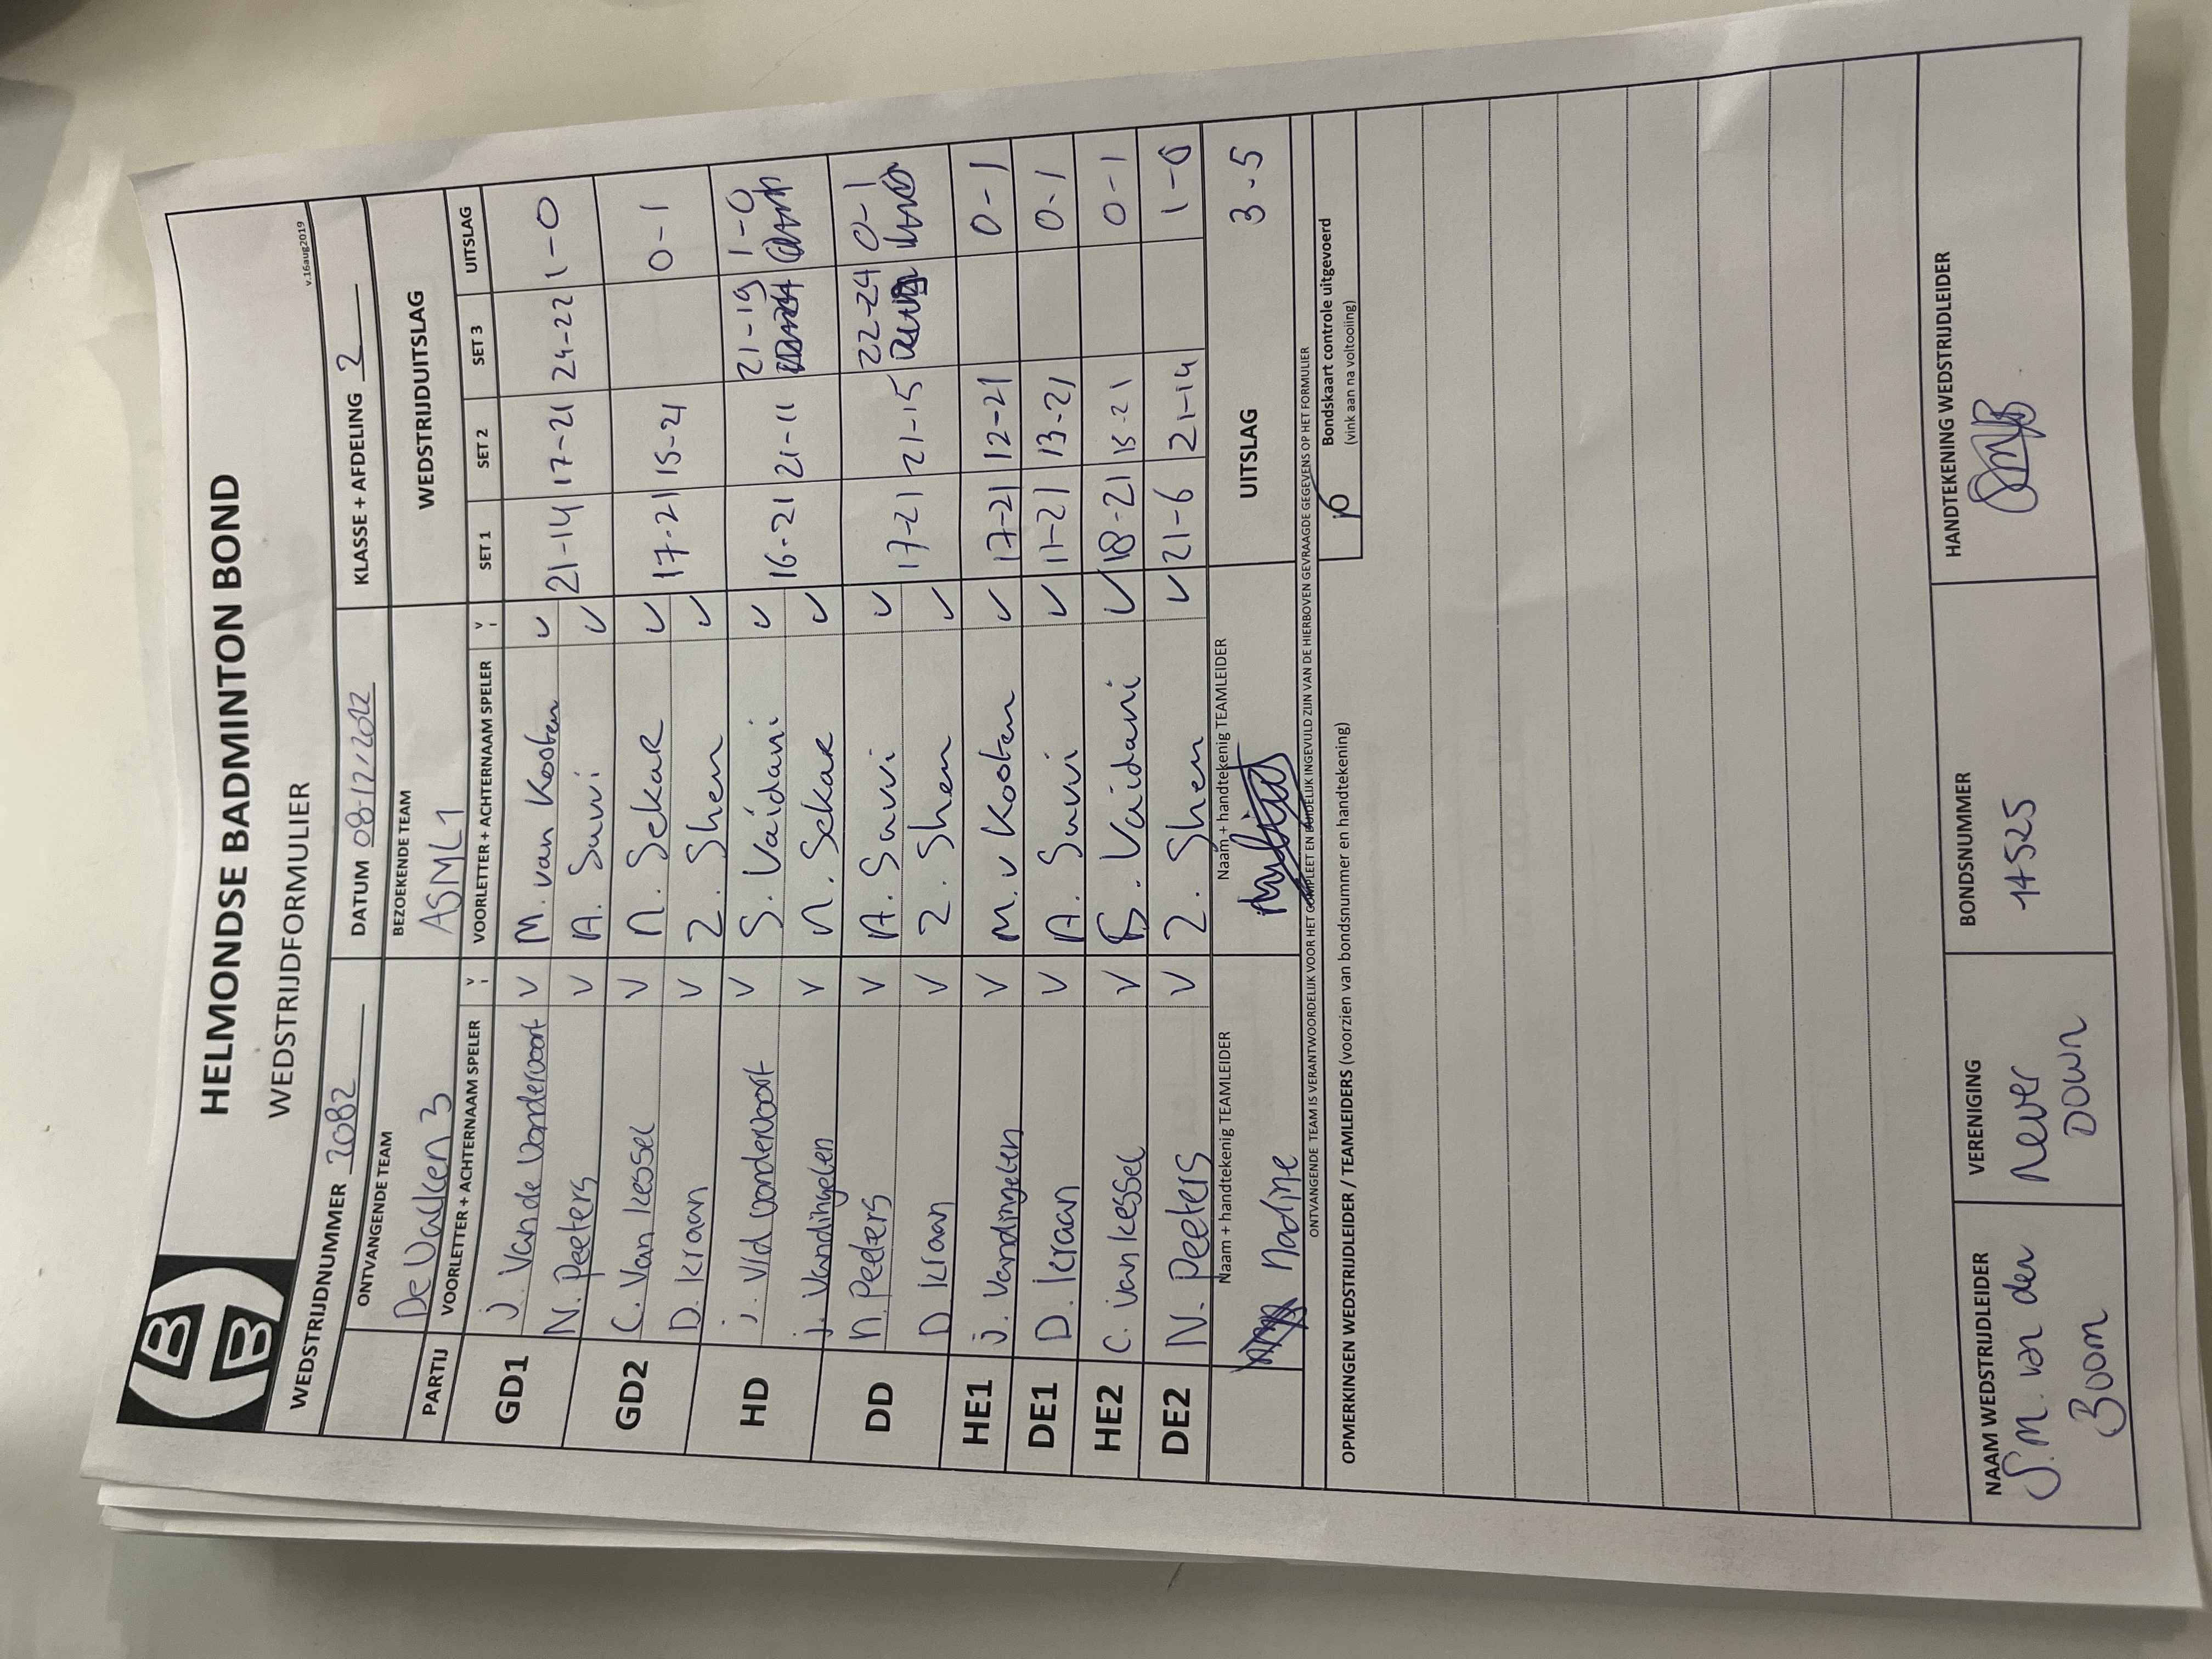 HELMONDSE BADMINTON BOND
WEDSTRIJDFORMULIER
v.16aug2019
WEDSTRIJDNUMMER 2082 DATUM 08-12-2022 KLASSE + AFDELING 2
ONTVANGENDE TEAM BEZOEKENDE TEAM WEDSTRIJDUITSLAG
De Valken 3 ASML 1
PARTIJ VOORLETTER + ACHTERNAAM SPELER V VOORLETTER + ACHTERNAAM SPELER V SET 1 SET 2 SET 3 UITSLAG
GD1 J. Van de Vondervoort V M. van Kooten V
N. Peeters V A. Suwi V 21-14 17-21 24-22 1-0
GD2 C. Van Kessel V N. Sekar V
D. Kraan V Z. Shen V 17-21 15-21 0-1
HD j. v/d vondervoort V S. Vaidani V 21-19 1-0
j. Vandingelen V N. Sekar V 16-21 21-11
DD N. Peeters V A. Suwi V 22-24 0-1
D Kraan V Z. Shen V 17-21 21-15
HE1 J. Vandingelen V M. v Kooten V 17-21 12-21 0-1
DE1 D. Kraan V A. Suwi V 11-21 13-21 0-1
HE2 C. van Kessel V S. Vaidani V 18-21 15-21 0-1
DE2 N. Peeters V Z. Shen V 21-6 21-14 1-0
Naam + handtekenig TEAMLEIDER Naam + handtekenig TEAMLEIDER UITSLAG 3-5
Nadine
ONTVANGENDE TEAM IS VERANTWOORDELIJK VOOR HET COMPLEET EN DUIDELIJK INGEVULD ZIJN VAN DE HIERBOVEN GEVRAAGDE GEGEVENS OP HET FORMULIER
OPMERKINGEN WEDSTRIJDLEIDER / TEAMLEIDERS (voorzien van bondsnummer en handtekening)
Bondskaart controle uitgevoerd
(vink aan na voltooiing)
NAAM WEDSTRIJDLEIDER VERENIGING BONDSNUMMER HANDTEKENING WEDSTRIJDLEIDER
S.M. van den Never 14525
Boom Down